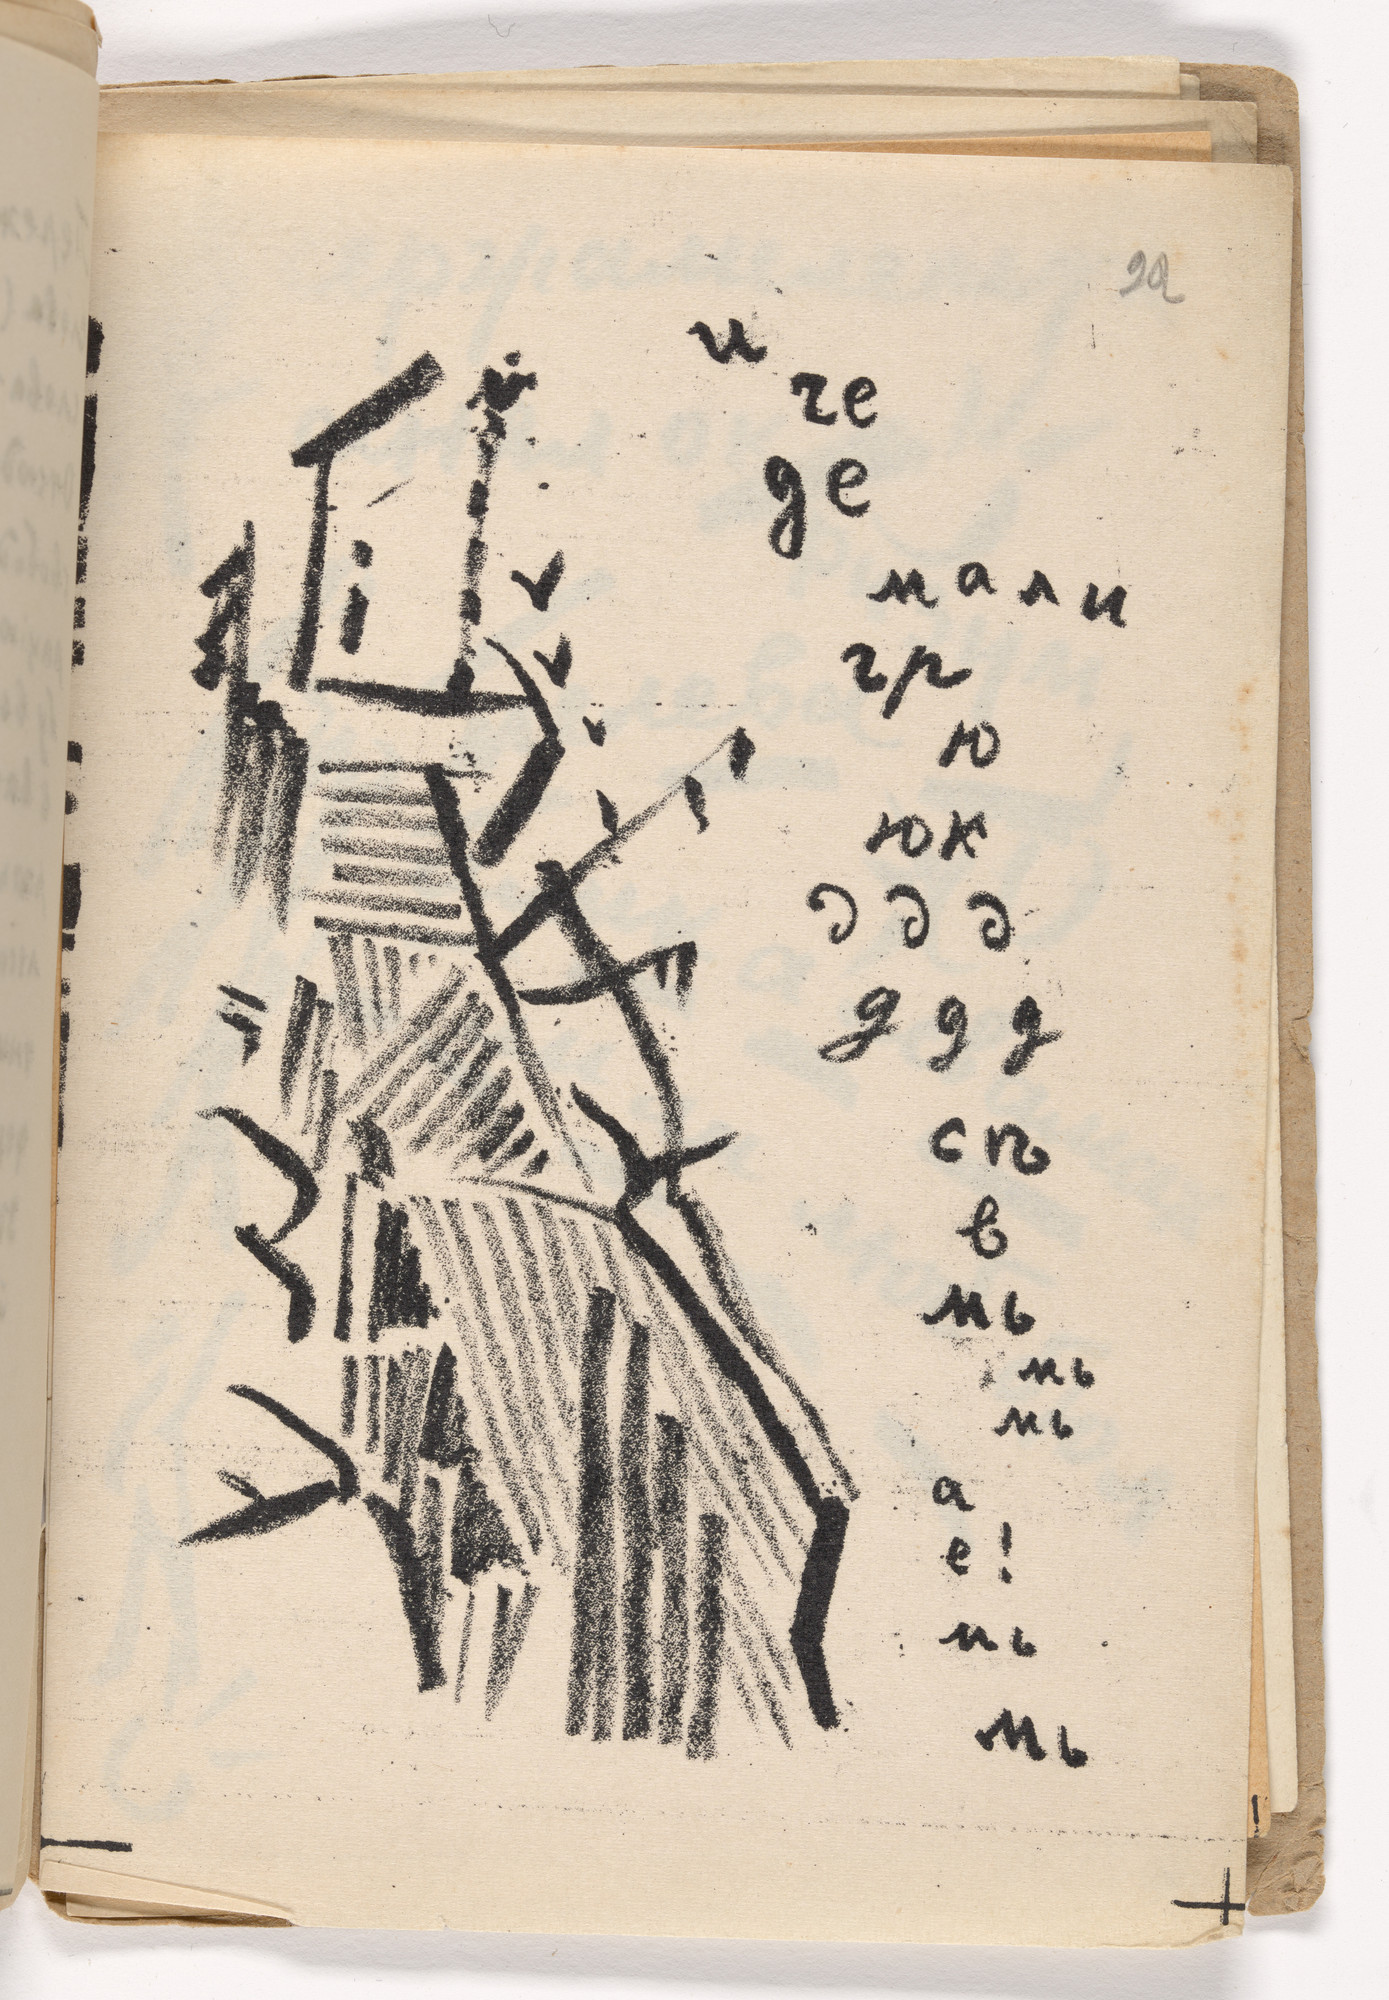 и
ге
де
мали
гр
ю
юк
д д д
д д д
съ
в
мь
мь
мь
а
е!
мь
мь